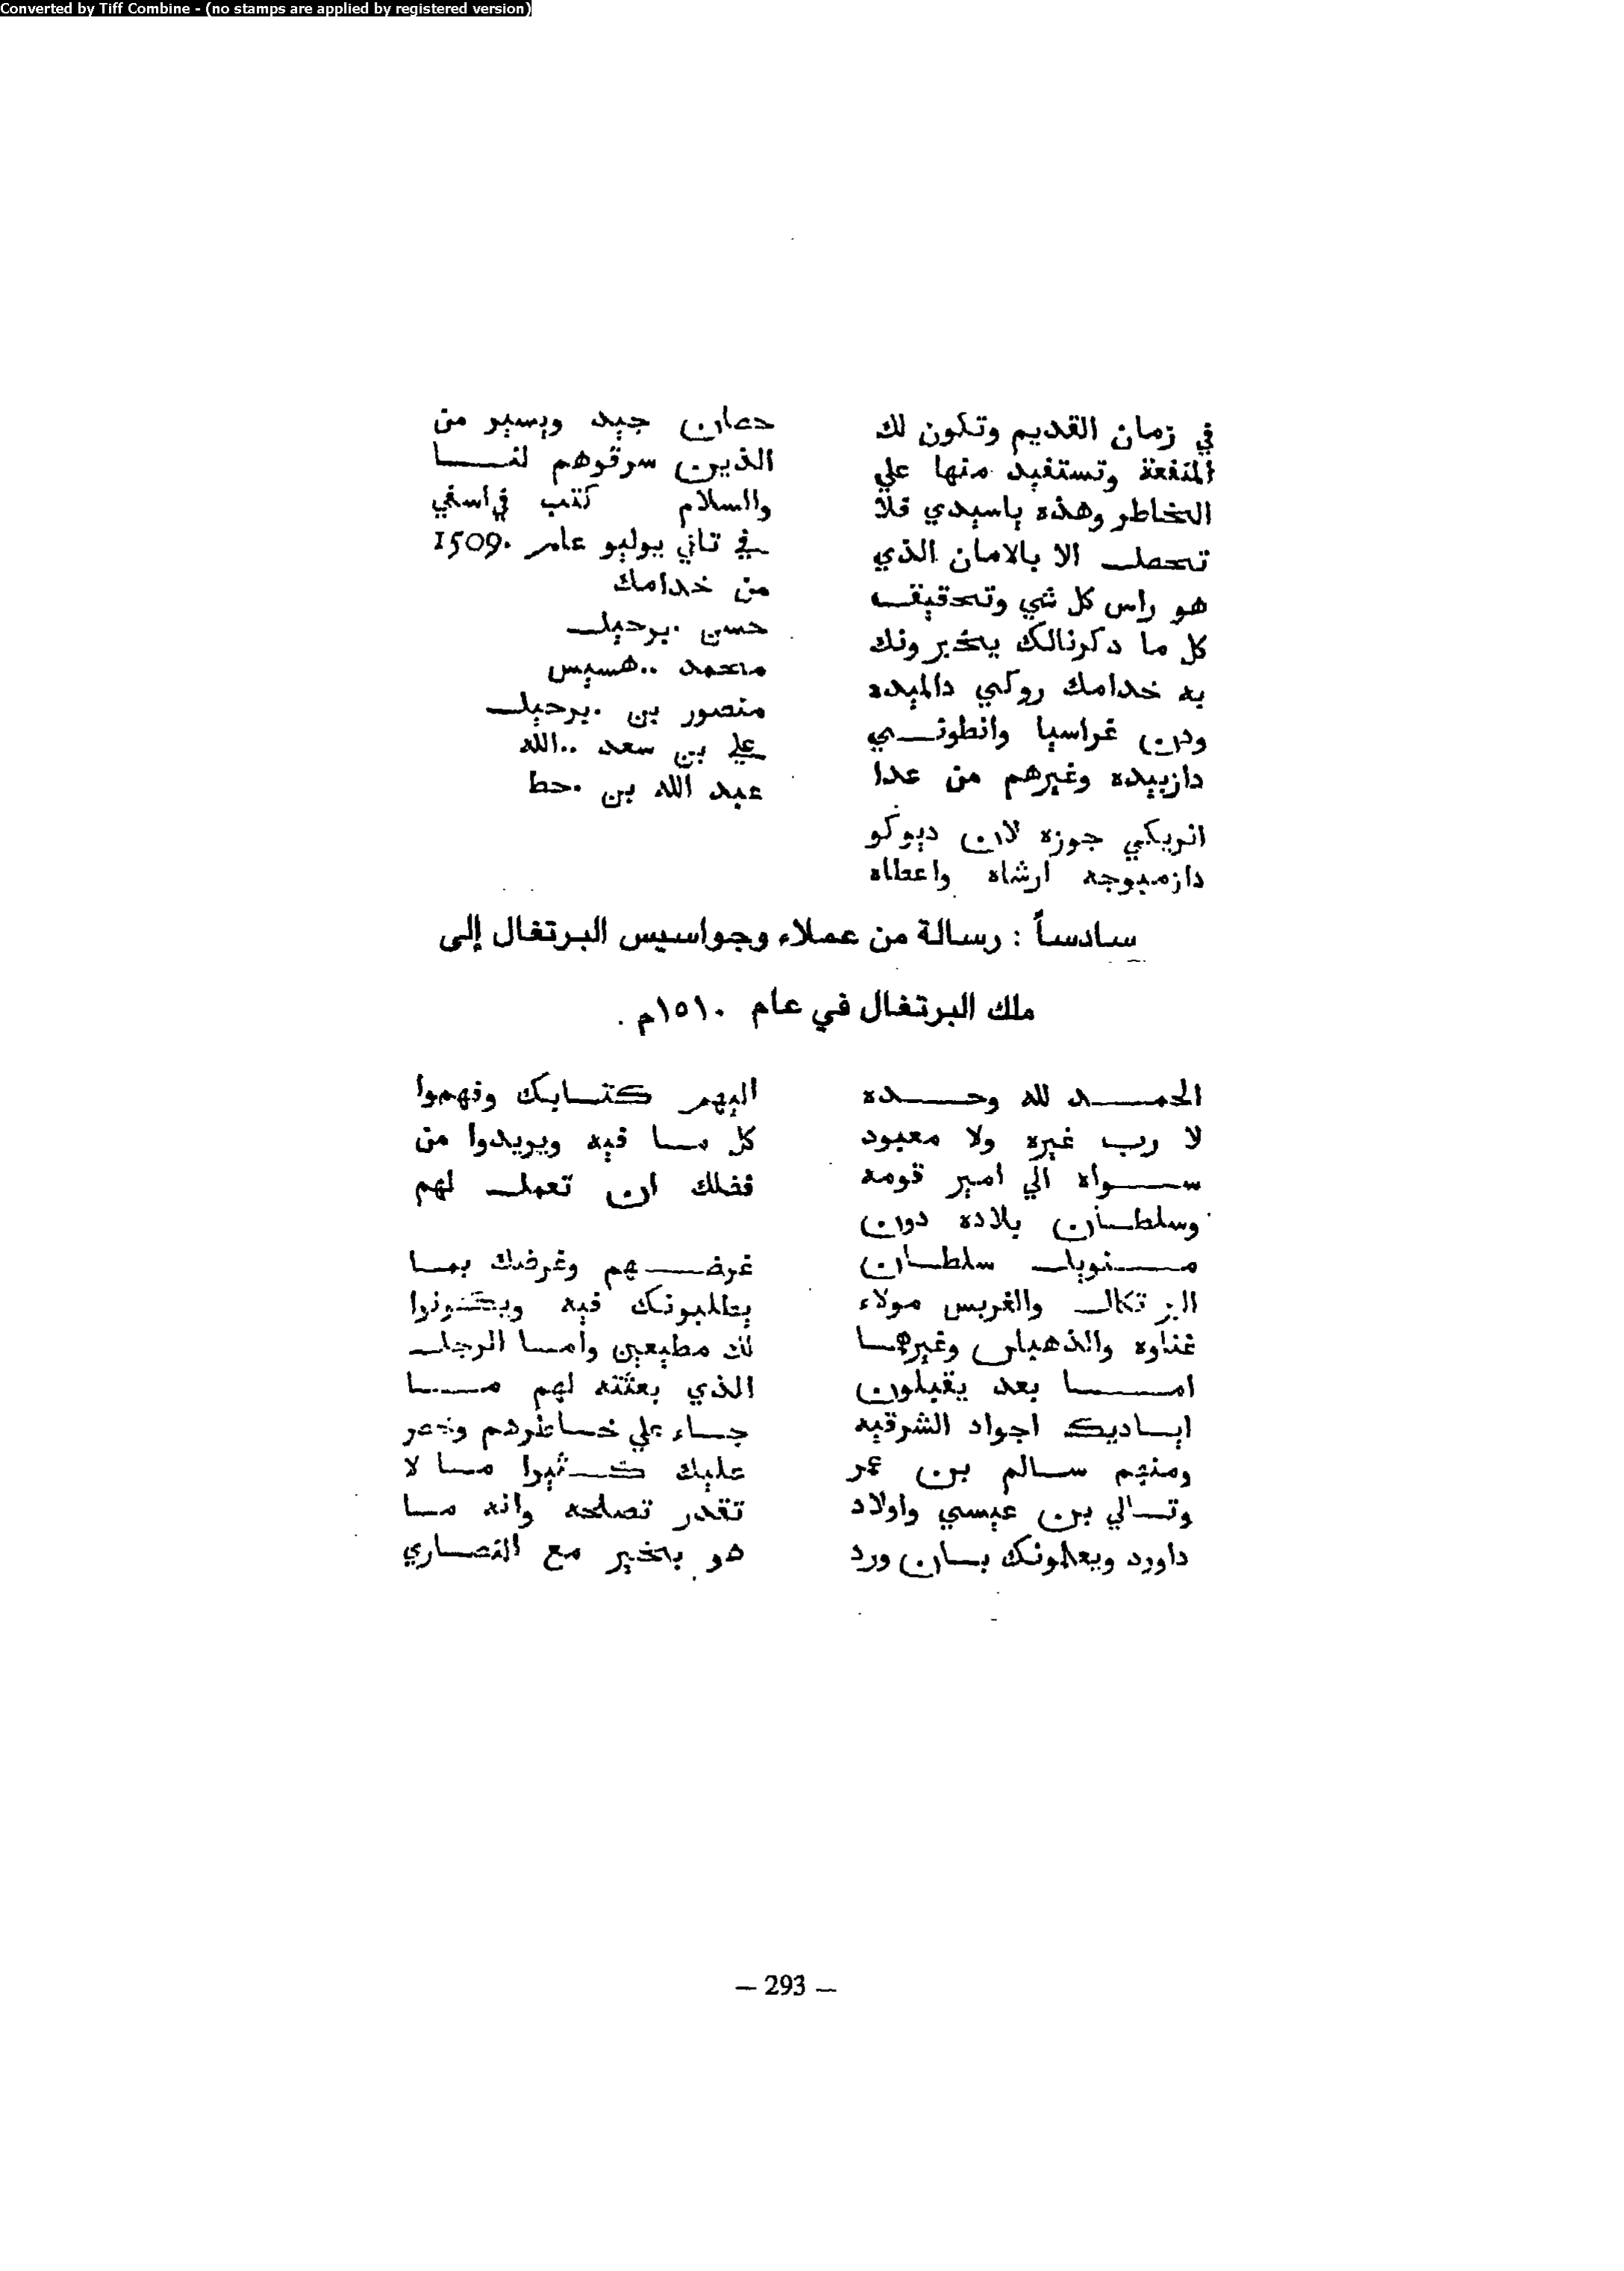 Converted by Tiff Combine - (no stamps are applied by registered version)
في زمان القديم وتكون لك
المنفعة وتستفيد منها علي
الخاطر وهذه ياسيدي فلا
تحصل الا بالامان الذي
هو راس كل شي وتحقيق
كل ما دكرنالك يخبرونك
به خدامك روكي دالميده
ودن غراسيا وانطوني
دازبيده وغيرهم من عدا
انريكي جوزه لان ديوكو
دازمبوجه ارشاه واعطاه
حصان جيد ويسير من
الذين سرقوهم لنا
والسلام كتب في اسفي
في تاني يوليو عام 1509.
من خدامك
حسن .برحيل
محمد ..هسيس
منصور بن .يرحيل
علي بن سعد ..الله
عبد الله بن .حط
سادساً : رسالة من عملاء وجواسيس البرتغال إلى
ملك البرتغال في عام ١٥١٠م .
الحمد لله وحده
لا رب غيره ولا معبود
سواه الي امير قومه
وسلطان بلاده دون
منويل سلطان
البرتكال والغربس مولاء
غناوه والذهبان وغيرها
اما بعد يقبلون
اياديك اجواد الشرقيه
ومنهم سالم بن عمر
وتالي بن عيسي واولاد
داورد ويعلمونك بان ورد
اليهم كتابك وفهموا
كل ما فيه ويريدوا من
فضلك ان تعمل لهم
غرضهم وغرضك بما
يطلبونك فيه ويكونوا
لك مطيعين واما الرجل
الذي بعثته لهم ما
جاء علي خاطرهم وخصر
عليك كثيرا ما لا
تقدر تصلحه وانه ما
هو بخير مع النصاري
— 293 —